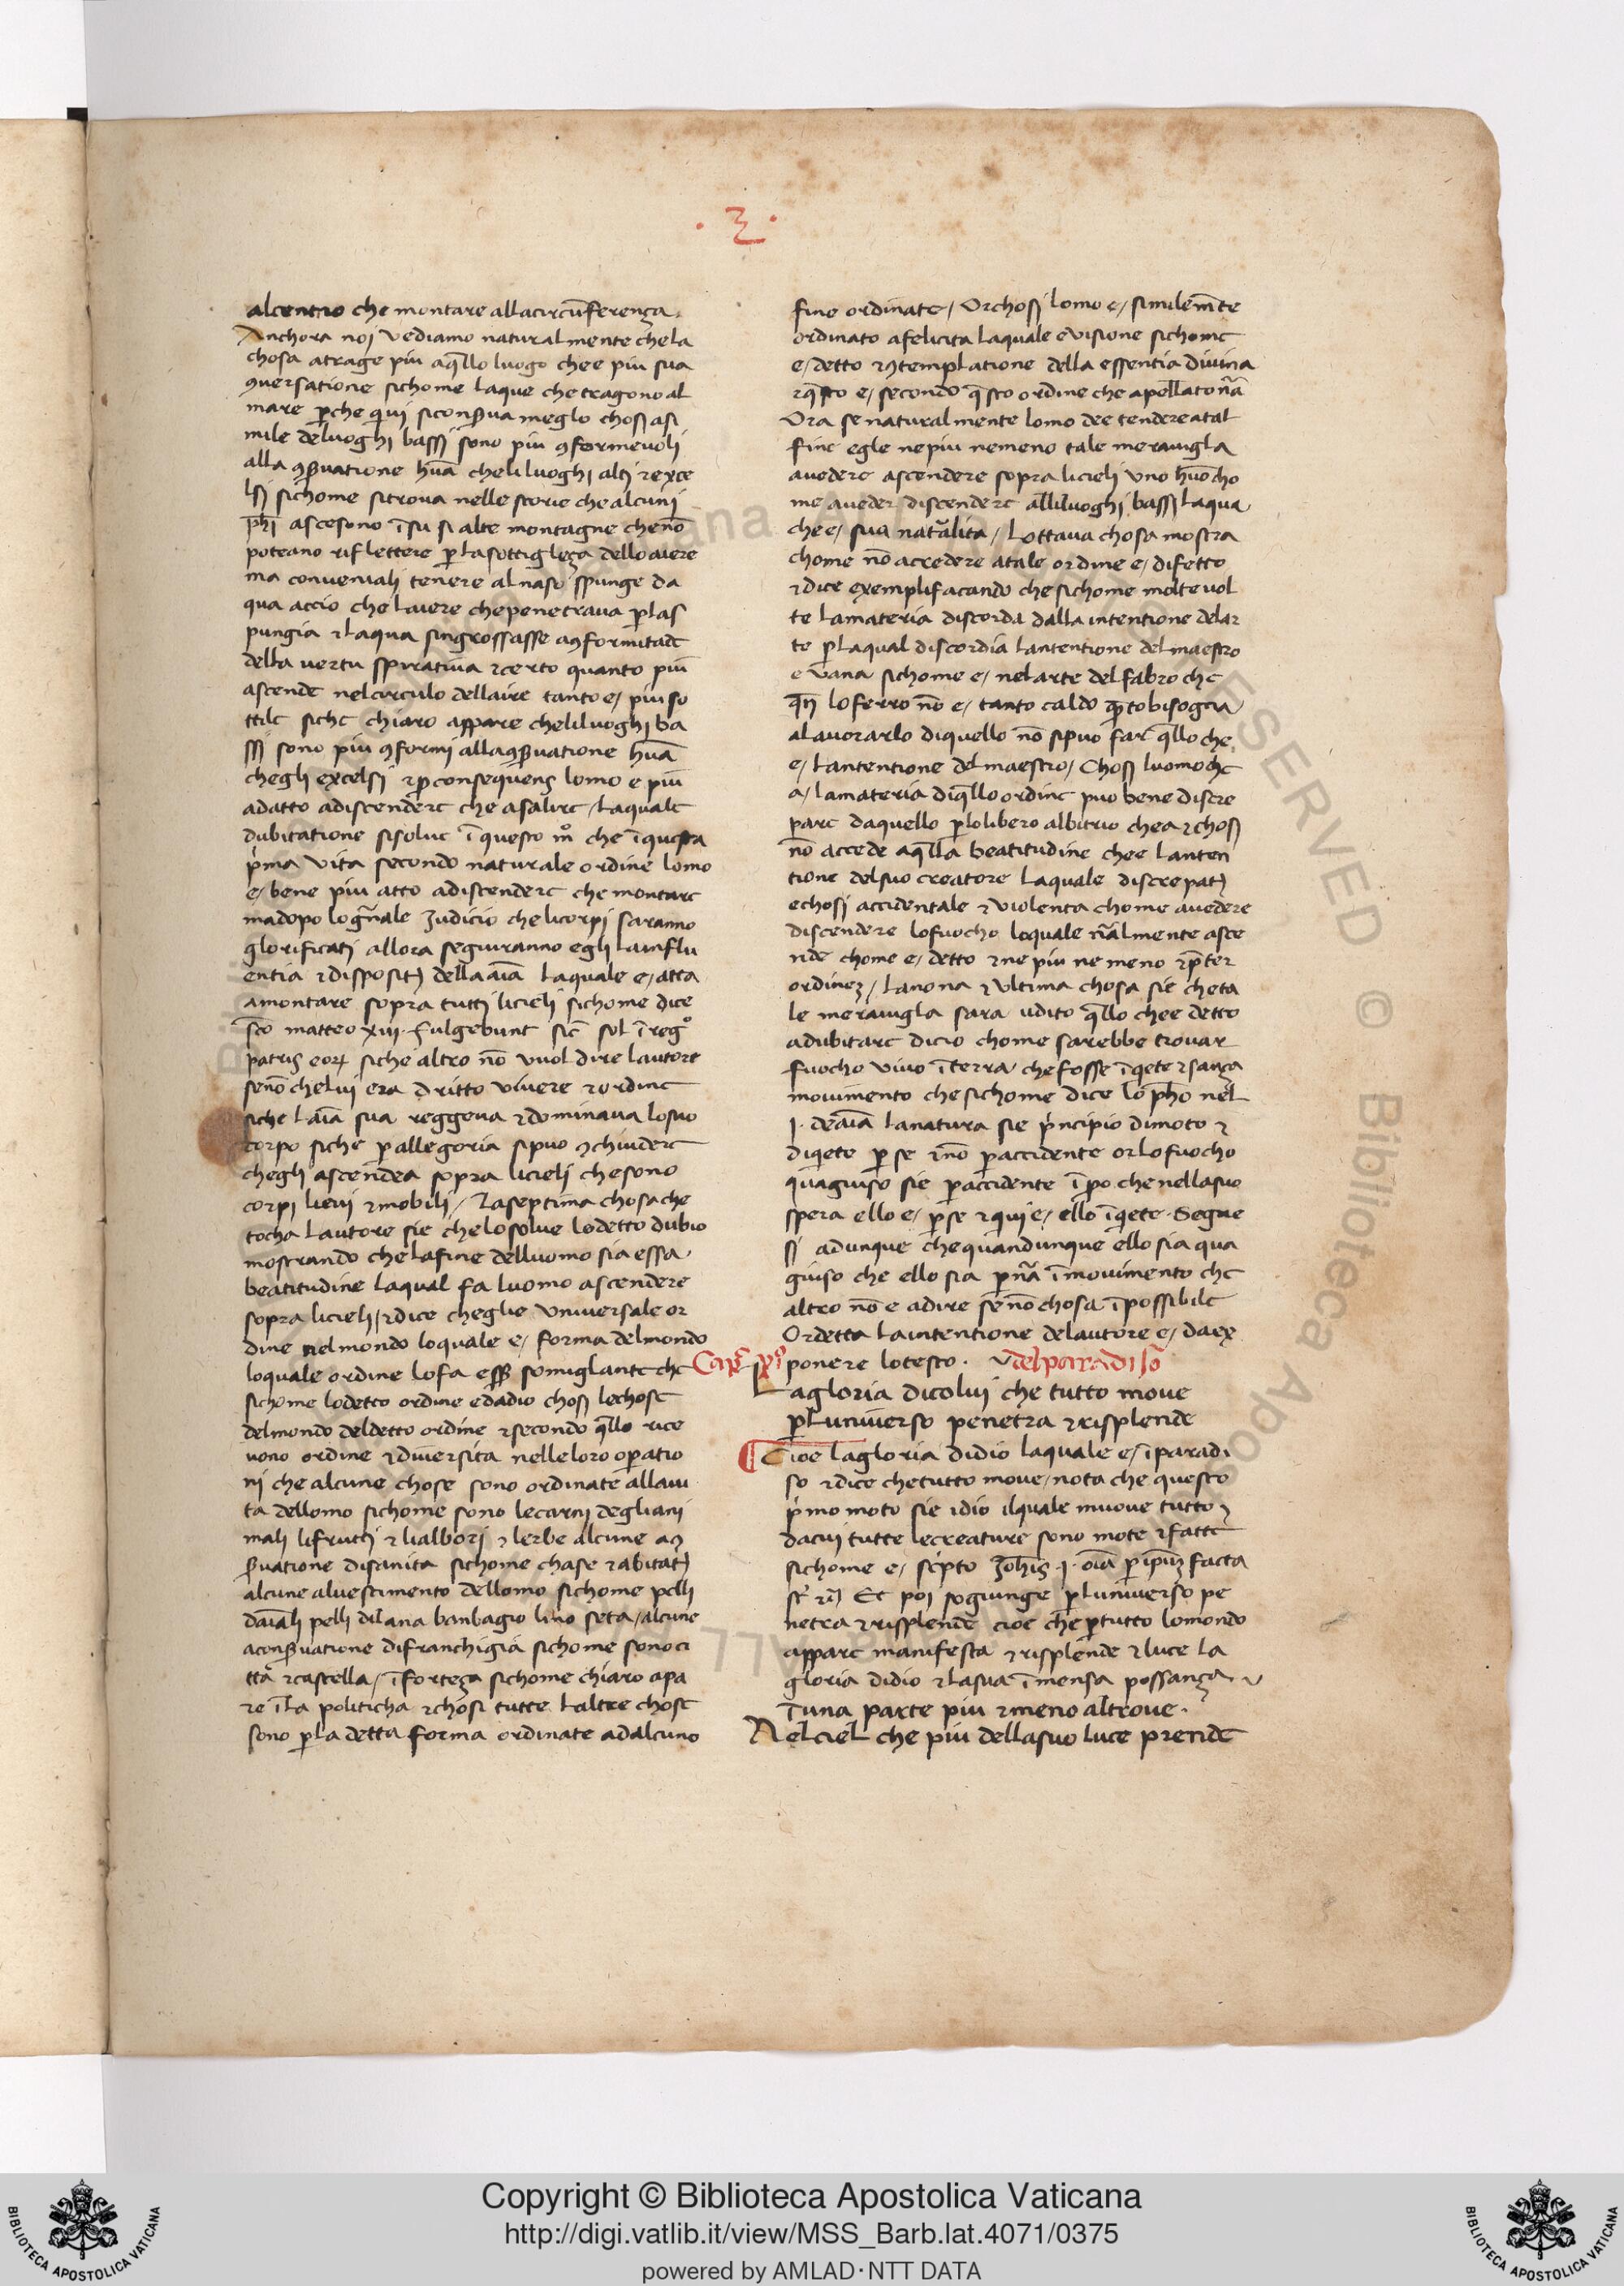 · 3 ·
alcentro che montare allacircūferenza.
Anchora noi vediamo naturalmente chela
chosa atrage piu aq̄llo luogo chee piu sua
ꝯuersatione sichome laque chetragonoal
mare ꝑche qui siconẜua meglo chosi asi
mile deluoghi bassi sono piu ꝯformeuoli
alla ꝯẜuatione huā cheliluoghi alti ⁊exce
lsi sichome sitroua nelle storie che alcuni
ph̄i ascesono ī su si alte montagne chenō
poteano riflettere ꝑlasottigleza dello aiere
ma conueniali tenere alnaso spunge da
qua accio che laiere chepenetraua ꝑlas
pungia ⁊laqua singrossasse aꝯformitade
della uertu spiratiua ⁊certo quanto piu
ascende nelcirculo dellaire tanto e/ piuso
ttile siche chiaro appare cheliluoghi ba
ssi sono piu ꝯformi allaꝯẜuatione huā
chegli excelsi ⁊ꝑconsequens lomo e piu
adatto adiscendere che asalire/ laquale
dubitatione sisolue ī questo mº che ī questa
p̓ma vita secondo naturale ordine lomo
e/ bene piu atto adiscendere che montare
madopo logn̄ale Judicio chelicorpi saranno
glorificati allora seguiranno egli lainflu
entia ⁊disposit̃ dellaaīa laquale e/ atta
amontare sopra tutti licieli sichome dice
sc̄o matteo xiii. fulgebunt sic̄ sol ī regº
patris eoꝝ siche altro nō vuol dire lautore
senō chelui era dritto viuere ⁊ordine
siche laīa sua reggeua ⁊dominaua losuo
corpo siche ꝑ allegoria sipuo ꝯchiudere
chegli ascendea sopra licieli chesono
corpi lieui ⁊mobili/ Laseptima chosache
tocha lautore sie chelosolue lodetto dubio
mostrando chelafine delluomo sia essa
beatitudine laqual fa luomo ascendere
sopra licieli/ ⁊dice cheglie vniuersale or
dine nelmondo loquale e/ forma delmondo
loquale ordine lofa esẜ somiglante che
sichome lodetto ordine edadio chosi lechose
delmondo deldetto ordine ⁊secondo q̄llo rice
uono ordine ⁊diuersita nelleloro oꝑatio
ni che alcune chose sono ordinate allaui
ta dellomo sichome sono lecarni degliani
mali lifrutti ⁊lialbori ⁊ lerbe alcune aꝯ
ẜuatione disanita sichome chase ⁊abitat̃
alcune aluestimento dellomo sichome pelli
daīali pelli dilana banbagio lino seta/ alcune
aconẜuatione difranchigia sichome sonoci
tta ⁊castella/ ī forteza sichome chiaro apa
re ī la politicha ⁊chosi tutte laltre chose
sono ꝑla detta forma ordinate adalcuno
fine ordinate/ Orchosi lomo e/ similem̄te
ordinato afelicita laquale e visione sichome
e/ detto ⁊ꝯtemplatione della essentia diuina
⁊q̄sto e/ secondo q̄sto ordine che apellato nā
Ora se naturalmente lomo dee tendere atal
fine egle nepiu nemeno tale merauigla
auedere ascendere sopra licieli vno huō cho
me aueder discendere alliluoghi bassi laqua
che e/ sua nat̄alita/ Lottaua chosa mostra
chome nō acredere atale ordine e/ difetto
⁊dice exemplifacando che sichome molte vol
te lamateria discorda dalla intentione delar
te ꝑlaqual discordia lantentione delmaestro
e vana sichome e/ nelarte delfabro che
qn̄ loferro nō e/ tanto caldo q̄ntobisogna
alauorarlo diquello nō sipuo far q̄llo che
e/ lantentione delmaestro/ Chosi luomo che
a/ lamateria diq̄llo ordine puo bene discre
pare daquello ꝑlolibero albitrio chea ⁊chosi
nō accede aq̄lla beatitudine chee lanten
tione delsuo creatore laquale discrepat̃
echosi accidentale ⁊violenta chome auedere
discendere lofuocho loquale nālmente asce
nde chome e/ detto ⁊ne piu ne meno ⁊p̄ter
ordineꝫ/ Lanona ⁊vltima chosa sie cheta
le merauigla sara udito q̄llo chee detto
adubitare dicio chome sarebbe trouar
fuocho viuo ī terra chefosse īq̄ete ⁊sanza
mouimento chesichome dice lo ph̄o nel
j. deaīa lanatura sie p̓ncipio dimoto ⁊
diq̄ete ꝑ se ⁊nō ꝑaccidente orlofuocho
quagiuso sie ꝑaccidente īpo chenellasuo
spera ello e/ ꝑse ⁊qui e/ ello īq̄ete. Segue
si adunque chequandunque ello sia qua
giuso che ello sia ꝑ nā ī mouimento che
altro nō e adire senō chosa īpossibile
Ordetta laintentione delautore e/ daex
Cap̄. p̓º ponere lotesto. delparadiso
Lagloria dicolui che tutto moue
ꝑluniuerso penetra ⁊risplende
Cioe lagloria didio laquale e/ ī paradi
so ⁊dice chetutto moue/ nota che questo
p̓mo moto sie idio ilquale muoue tutto ⁊
dacui tutte lecreature sono mote ⁊fatte
sichome e/ sc̄pto Joh̄is .j. oīa ꝑ ip̄uꝫ facta
st̄ ⁊c̃ Et poi sogiunge ꝑluniuerso pe
netra ⁊risplende cioe che ꝑtutto lomondo
appare manifesta ⁊risplende ⁊luce la
gloria didio ⁊lasua īmensa possanza
ī una parte piu ⁊meno altroue.
Nelciel che piu dellasuo luce prende
Copyright © Biblioteca Apostolica Vaticana
http://digi.vatlib.it/view/MSS_Barb.lat.4071/0375
powered by AMLAD·NTT DATA
BIBLIOTECA APOSTOLICA VATICANA
BIBLIOTECA APOSTOLICA VATICANA